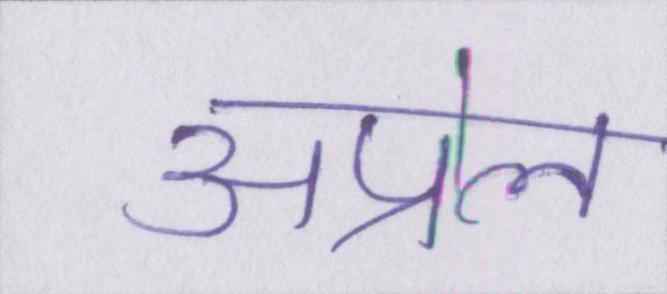 अप्रेल